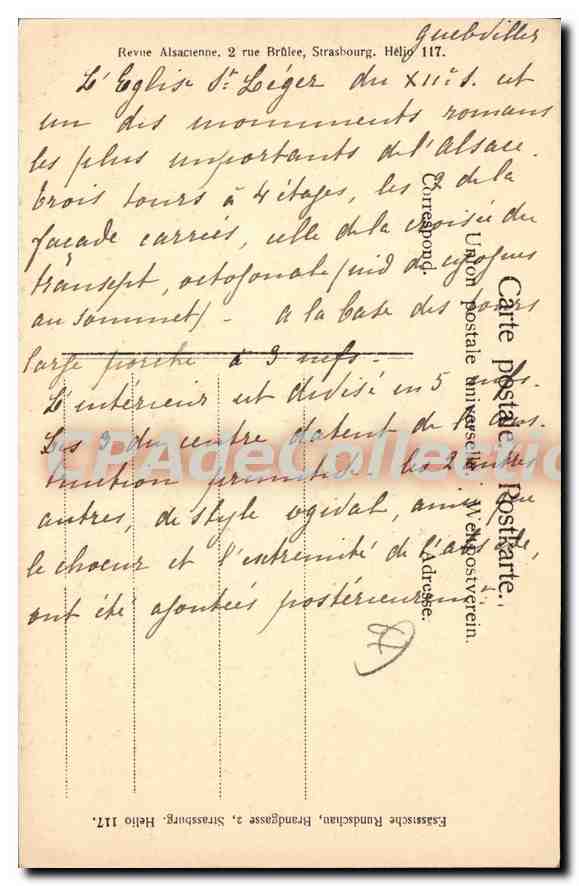 Guebviller
Revue Alsacienne, 2 rue Brûlée, Strasbourg. Hélio 117.
L'Eglise St Léger du XIIe s. est
un des monuments romans
les plus importants de l'Alsace.
trois tours à 4 étages, les 2 de la
façade carrées, celle de la croisée du
transept, octogonale (nid de cigognes
au sommet) - A la base des tours
large porche à 3 nefs.
L'intérieur est divisé en 5 nefs.
Les 3 du centre datent de la cons-
truction primitive les 2
autres, de style ogival, ainsi que
le choeur et l'extrémité de l'abside,
ont été ajoutées postérieurement.
Carte postale. Postkarte.
Union postale universelle. Weltpostverein.
Correspond.
Adresse.
CPADeCollection
Elsässische Rundschau, Brandgasse 2, Strassburg. Helio 117.